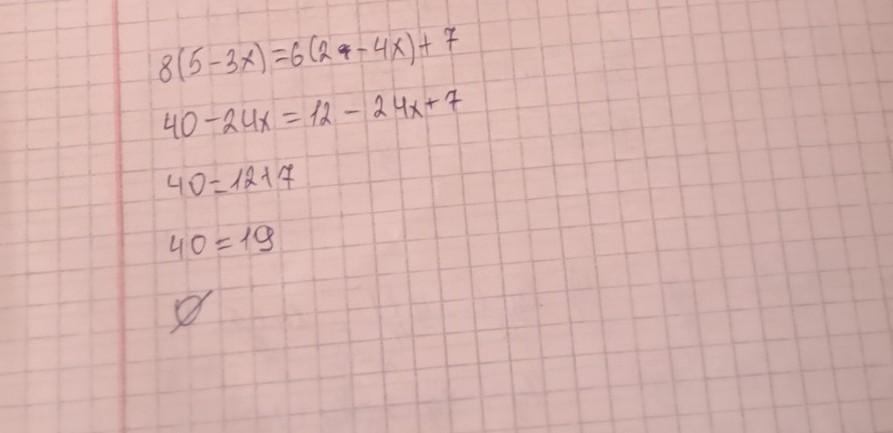 8(5-3x)=6(2-4x)+7
40-24x=12-24x+7
40=12+7
40=19
∅